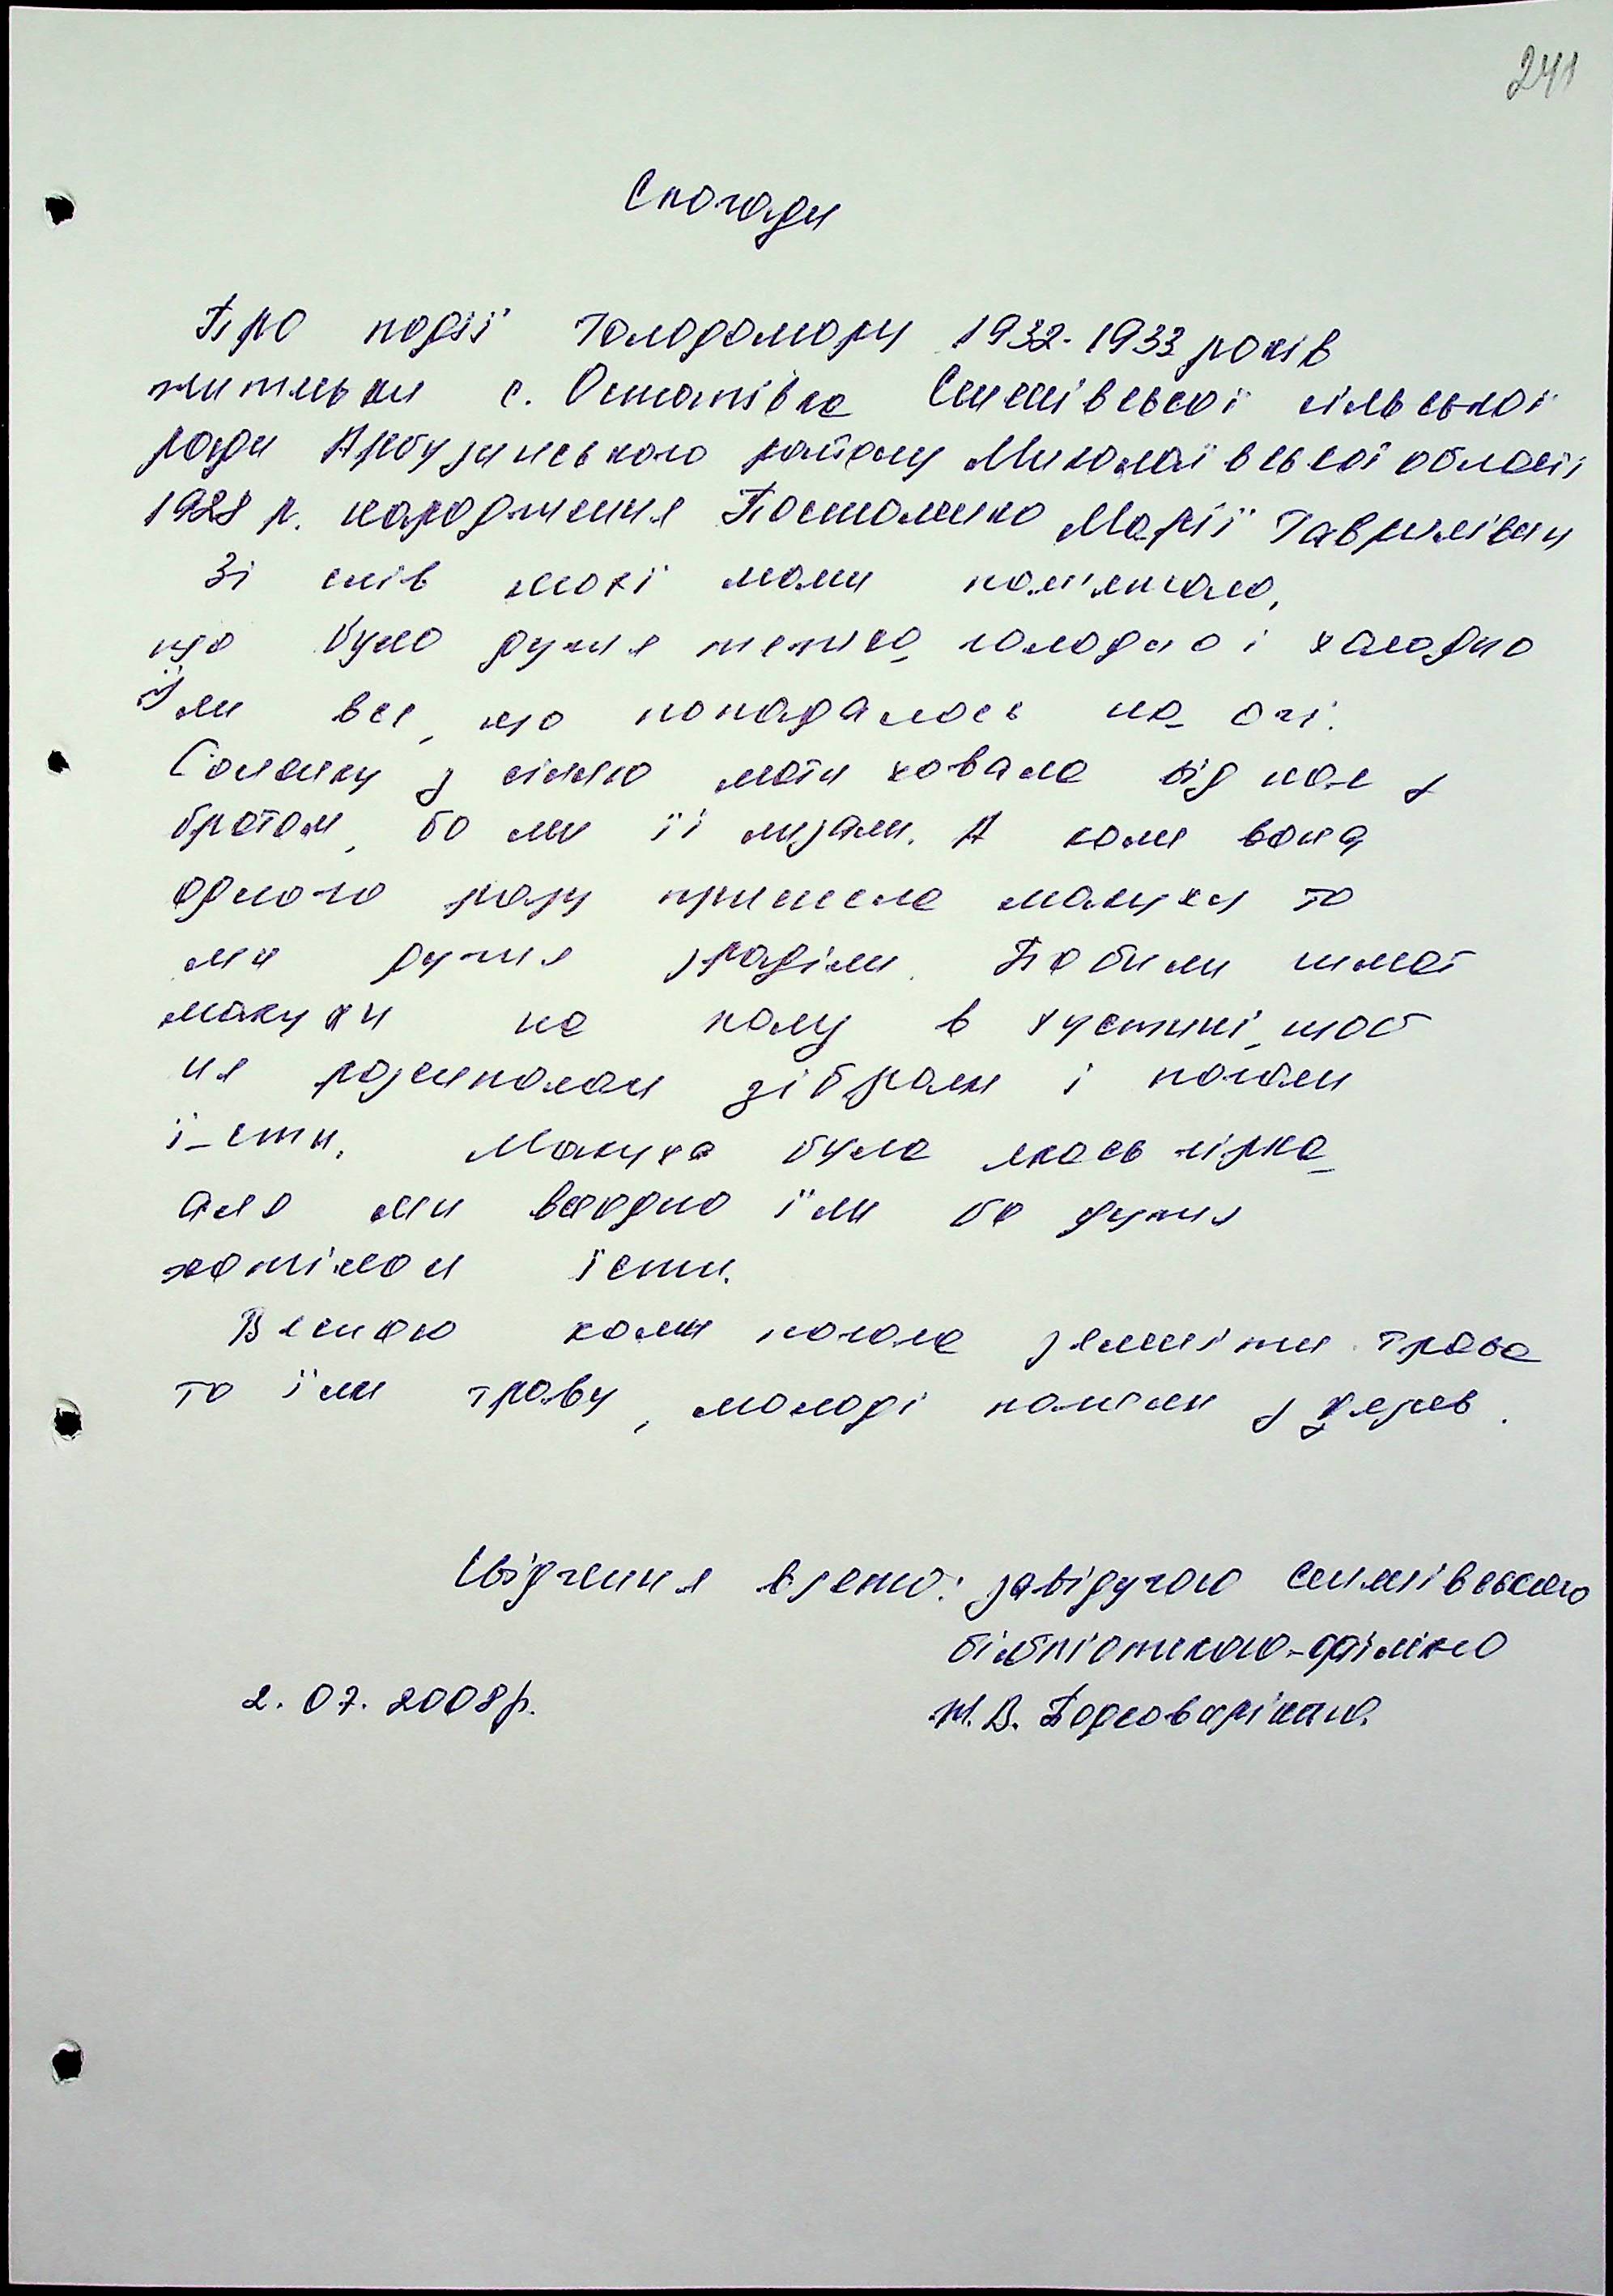 241
Спогади
Про події Голодомору 1932-1933 років
жительки с. Остапівка Семенівської сільської
ради Арбузинського району Миколаївської області
1928 р. народження Постоленко Марії Гаврилівни
Зі слів моєї мами пам'ятаю,
що було дуже тяжко, голодно і холодно
Їли все, що попадалось на очі.
Солонку з сіллю мати ховала від нас з
братом, бо ми її лизали. А коли вона
одного разу принесла макухи то
ми дуже зраділи. Побили шмат
макухи на полу в хустині, щоб
не розсипалась зібрали і почали
ї-сти. Макуха була якась гірка,
але ми всеодно їли бо дуже
хотілося їсти.
Весною коли почала зеленіти трава
то їли траву, молоді пагони з дерев.
Свідчення взято: завідуючою
бібліотекою-філією
2. 07. 2008р.